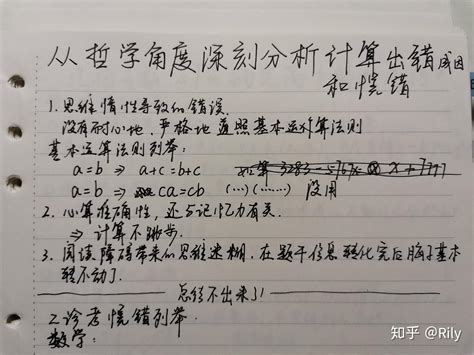 从哲学角度深刻分析计算出错成因
和慌错
1.思维惰性导致的错误.
没有耐心地,严格地遵照基本运算法则
基本运算法则列举:
a=b ⇒ a+c=b+c
a=b ⇒ ca=cb (…)(……) 没用
2.心算准确性,还与记忆力有关.
⇒ 计算不跳步.
3.阅读障碍带来的思维迷糊.在题干信息转化完后脑子基本
转不动了.
总结不出来了!
2.诊考慌错列举.
数学:
知乎 @Rily